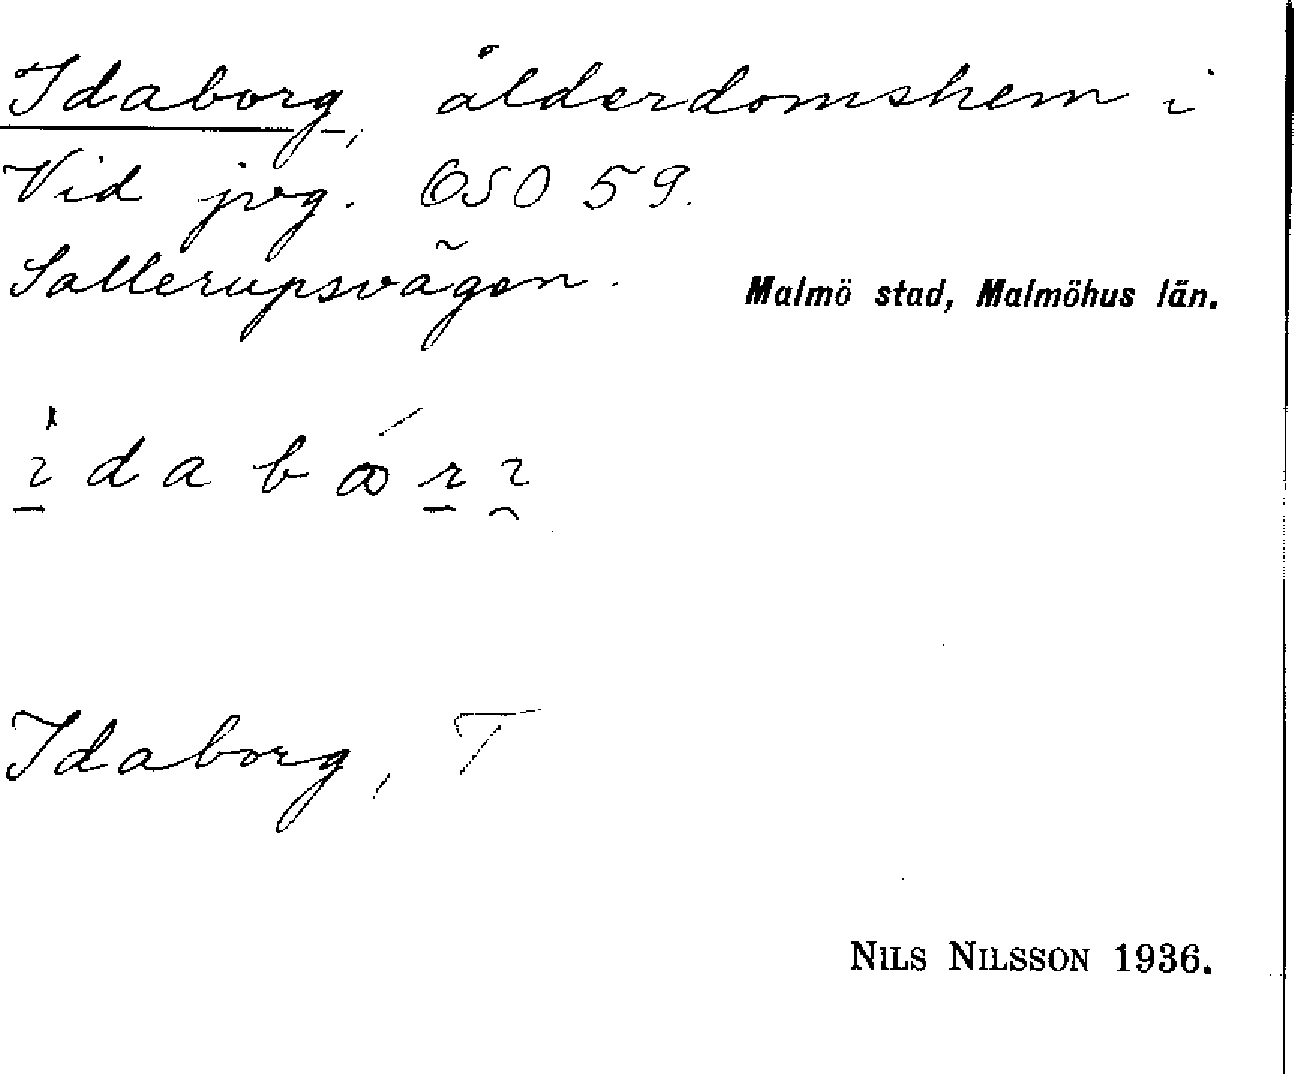 Idaborg, ålderdomshem i
Vid jvg. OSO 59.
Sallerupsvägen.
Malmö stad, Malmöhus län.
Idaborg, T
NILS NILSSON 1936.